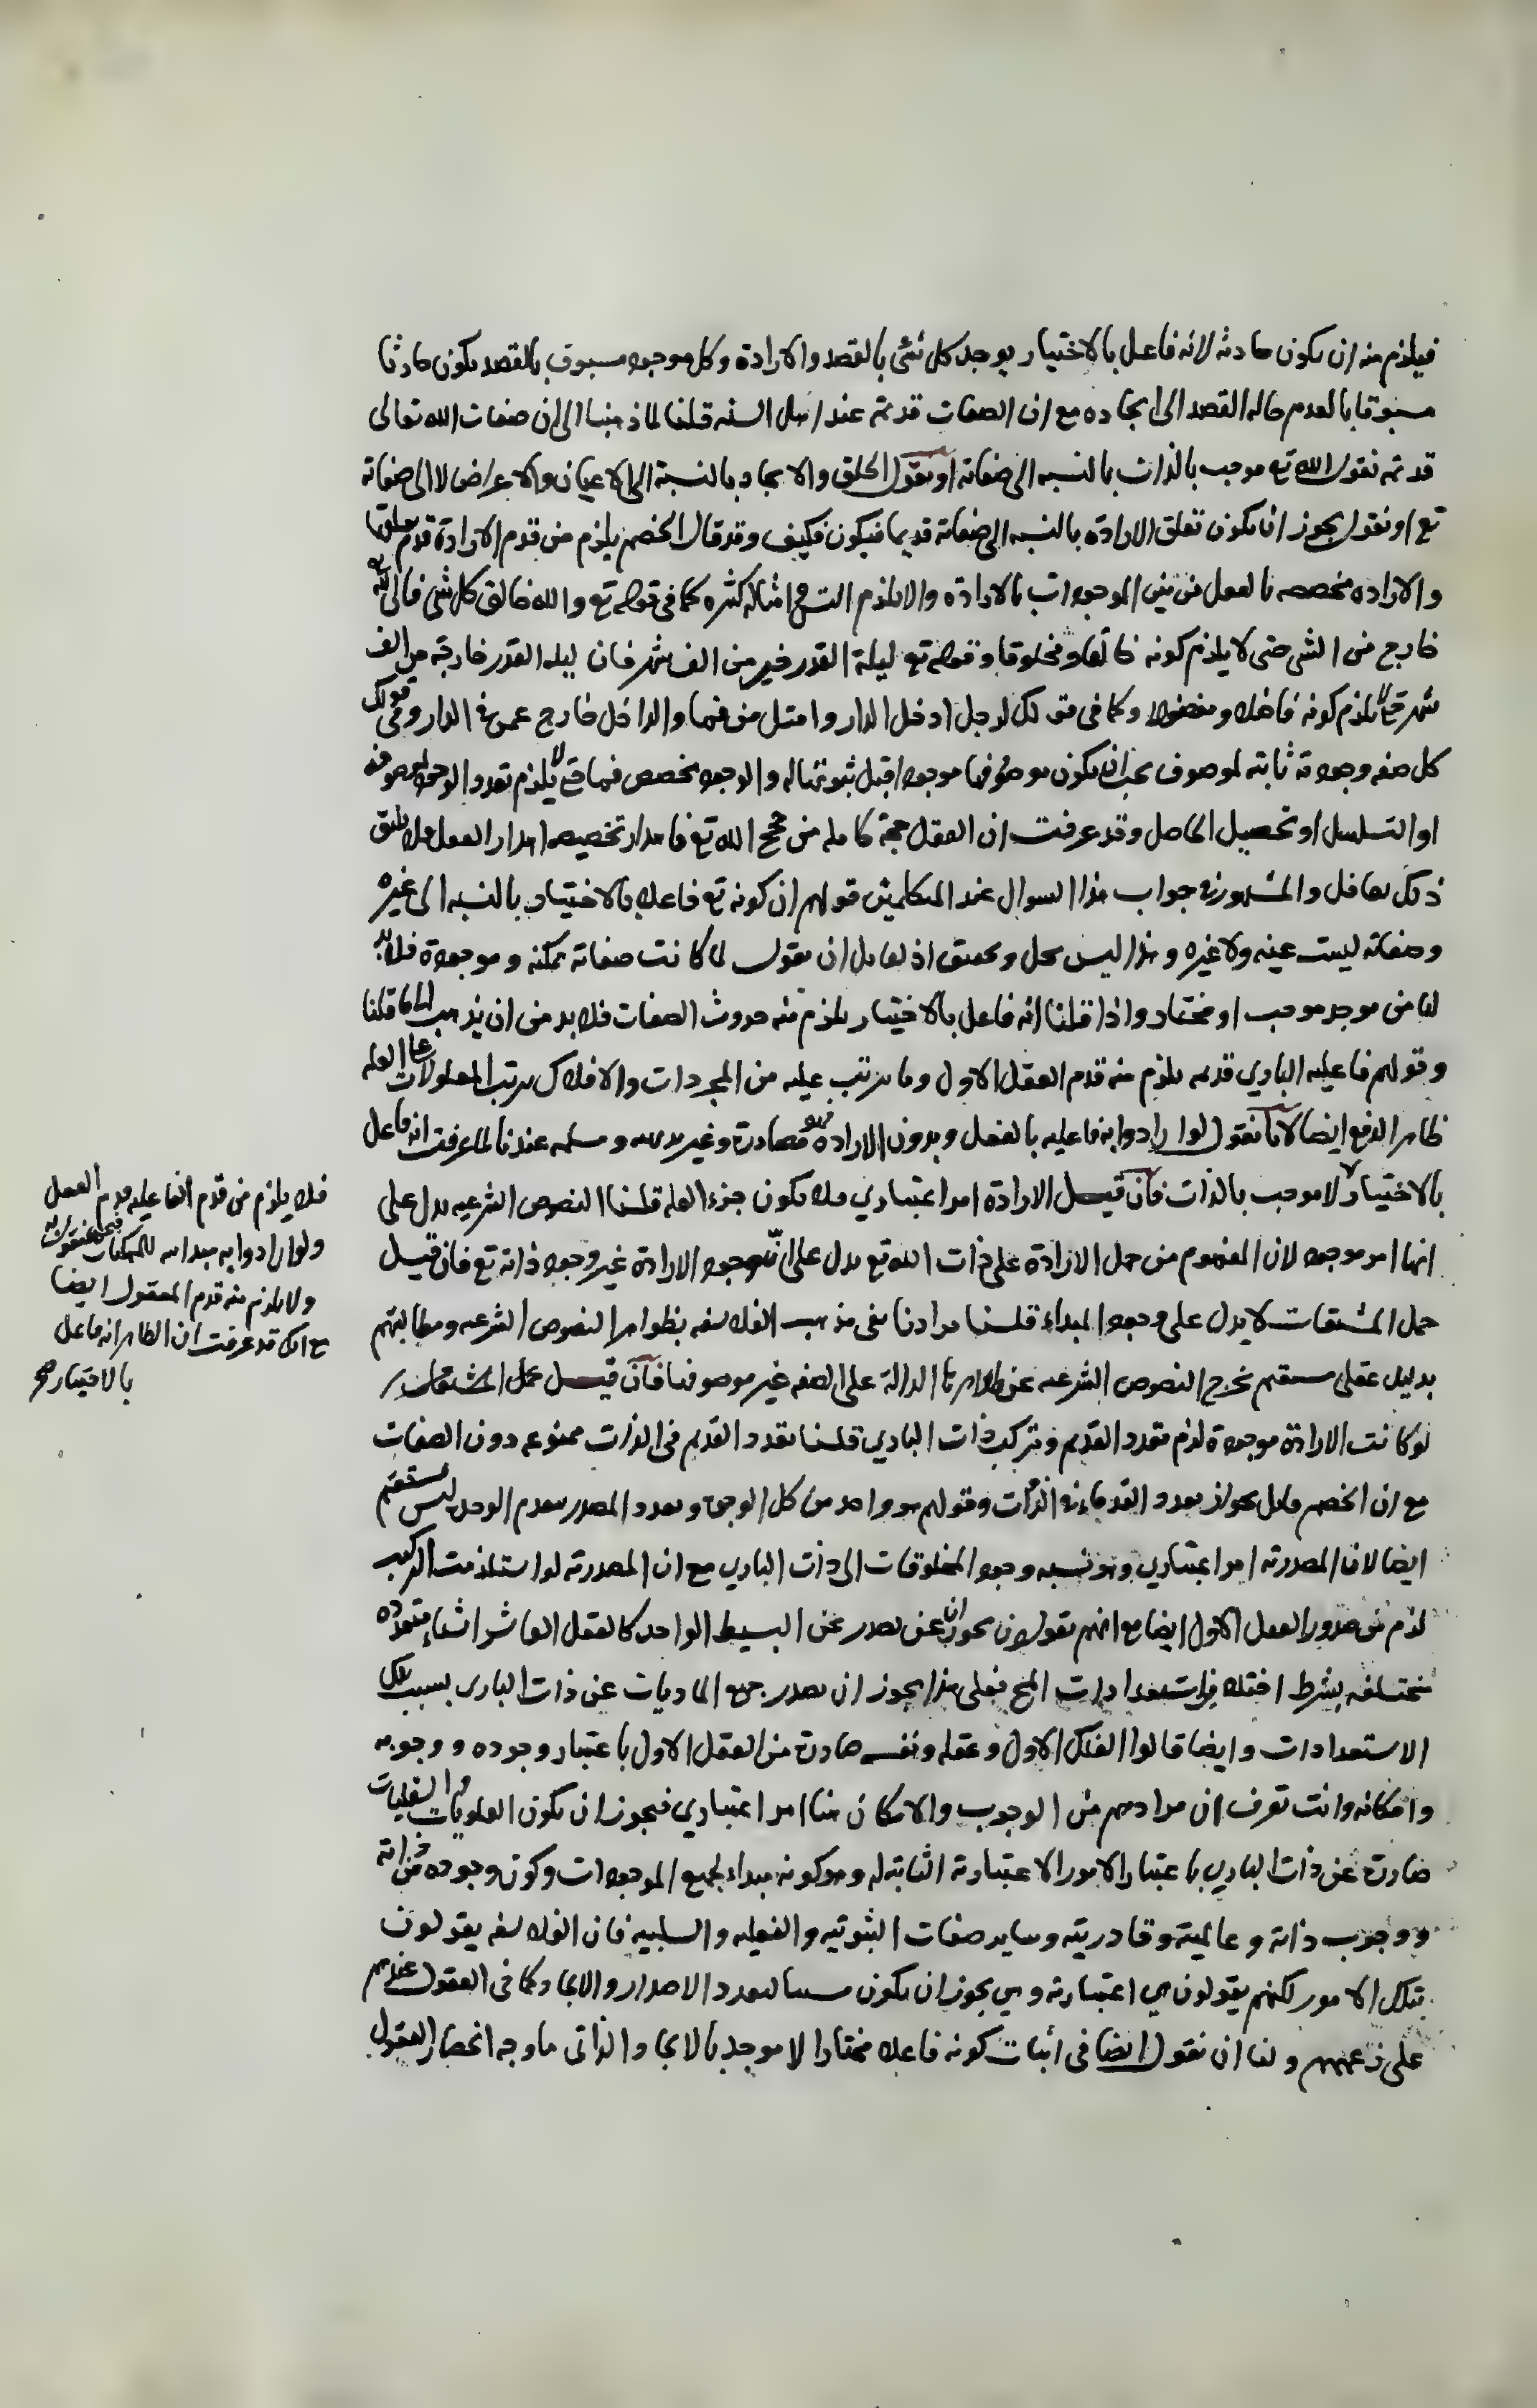 فيلزم منه ان يكون حادثه لانه فاعل بالاختيار يوجد كل شئ بالقصد والارادة وكل موجود مسبوق بالقصد يكون حادثا
مسبوقا بالعدم حاله القصد الى ايجاده مع ان الصفات قديمة عند اهل السنه قلنا لما ذهبنا الى ان صفات الله تعالى
قديمه نقول الله تع موجب بالذات بالنسبه الى صفاته او نقول الخلق والايجاد بالنسبة الى الاعيان والاعراض لا الى صفاته
تع او نقول يجوز ان يكون تعلق الارادة بالنسبه الى صفاته قديما فيكون فكيف وقد قال الخصم يلزم من قدم الارادة قدم تعلقها
والاراده مخصصه بالعقل من بين الموجودات بالارادة والا يلزم التس امثاله كثيره كما في قوله تع والله خالق كل شئ فالله
خارج من الشئ حتى لا يلزم كونه خالقا ومخلوقا وقوله تع ليلة القدر خير من الف شهر فان ليله القدر خارجة من الف
شهر حتى لا يلزم كونه فاضلا ومفضولا وكما في قولك لرجل ادخل الدار وامثل من فيها والداخل خارج عمن في الدار وفي قولك
كل صفه وجودية ثابته لموصوف يجب ان يكون موصوفها موجودا قبل ثبوتها له والوجود مخصص فيها حتى لا يلزم تعدد الوجود لموصوفه
او التسلسل او تحصيل الحاصل وقد عرفت ان العقل حجة كامله من حجج الله تع فاهدار تخصيصه اهدار العقل فلا يليق
ذلك بعاقل والمشهور في جواب هذا السوال عند المتكلمين قولهم ان كونه تع فاعلا بالاختيار بالنسبه الى غيره
وصفاته ليست عينه ولا غيره وهذا ليس بحل وتحقيق اذ لقائل ان يقول لما كانت صفاته ممكنه وموجودة فلا بد
لها من موجد موجب او مختار واذا قلنا انه فاعل بالاختيار يلزم منه حدوث الصفات فلا بد من ان يذهب الى ما قلنا
وقولهم فاعليه الباري قديمه يلزم منه قدم العقل الاول وما يترتب عليه من المجردات والافلاك ترتب المعلولات على العله
ظاهر الدفع ايضا لانا نقول لو ارادوا به فاعليه بالفعل وبدون الارادة فهو مصادرة وغير بديهيه ومسلمه عندنا لما عرفت انه فاعل
بالاختيار لا موجب بالذات فان قيل الارادة امر اعتباري فلا يكون جزء العله قلنا النصوص الشرعيه يدل على
انها امر موجود لان المفهوم من حمل الارادة على ذات الله تع يدل على ان وجود الارادة غير وجود ذاته تع فان قيل
حمل المشتقات لا يدل على وجود المبداء قلنا مرادنا نفى مذهب الفلاسفه بظواهر النصوص الشرعيه ومطالبتهم
بدليل عقلى مستقيم يخرج النصوص الشرعيه عن ظواهرها الدالة على الصفه غير موصوفها فان قيل حمل المشتقات
لو كانت الارادة موجودة لزم تعدد القديم وتركب ذات الباري قلنا تعدد القديم في الذات ممنوعه دون الصفات
مع ان الخصم قايل بجواز تعدد القدماء في الذات وقولهم هو واحد من كل الوجوه وتعدد المصدر بعدم الوحدة ليس بمستقيم
ايضا لان المصدرية امر اعتباري وهو نسبه وجود المخلوقات الى ذات الباري مع ان المصدرية لو استلزمت التركيب
لزم من صدور العقل الاول ايضا مع انهم يقولون يجوز ان يصدر عن البسيط الواحد كالعقل العاشر اشياء متعدده
مختلفه بشرط اختلاف استعدادات الخ فعلى هذا يجوز ان يصدر جميع الماديات عن ذات الباري بسبب تلك
الاستعدادات وايضا قالوا الفلك الاول وعقله ونفسه صادرة من العقل الاول باعتبار وجوده ووجوبه
وامكانه وانت تعرف ان مرادهم من الوجوب والامكان هنا امر اعتباري فيجوز ان يكون العلويات والسفليات
صادرة عن ذات الباري باعتبار الامور الاعتبارية الثابته له وهو كونه مبداء لجميع الموجودات وكون وجوده من ذاته
ووجوب ذاته وعالميته وقادريته وساير صفات الثبوتيه والفعليه والسلبيه فان الفلاسفه يقولون
بتلك الامور لكنهم يقولون هي اعتبارية وهي يجوز ان يكون سببا لتعدد الاصدار والايجاد كما في العقول عندهم
على زعمهم ولنا ان نقول ايضا في اثبات كونه فاعلا مختارا لا موجد بالايجاد الذاتى ما وجه انحصار العقول
فلا يلزم من قدم الفاعليه قدم العقل
ولو ارادوا به مبدايه للممكنات
ولا يلزم منه قدم المعقول ايضا
مع انك قد عرفت ان الظاهر انه فاعل
بالاختيار صح